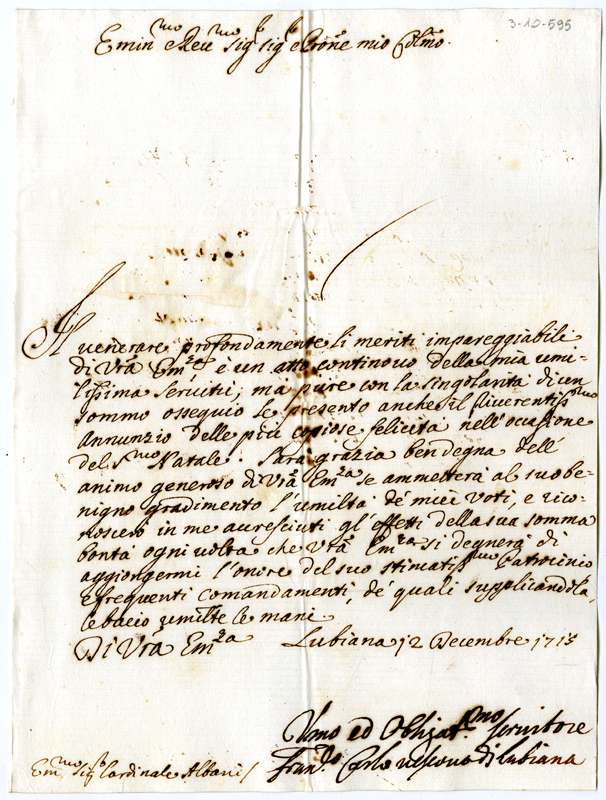 3-10-595
Emin.mo e Reu.mo Sig.r Sig.r e Prone mio Colmo.
Il uenerare profondamente li meriti impareggiabili
di Vrā Em.za è un atto continouo della mia umi-
lissima seruitù; mà pure con la singolarità di un
sommo ossequio le presento anche il riuerentiss.mo
Annunzio delle più copiose felicità nell'occasione
del S.mo Natale. Sarà grazia ben degna dell'
animo generoso di Vrā Em.za se ammetterà al suo be-
nigno gradimento l'umiltà de' miei Voti, e rico-
noscerò in me accresciuti gl'effetti della sua somma
bontà ogni uolta che Vrā Em.za si degnerà di
aggiongermi l'onore del suo stimatiss.mo Patrocinio
e frequenti comandamenti, de' quali supplicandola,
le bacio umilte le mani
Di Vrā Em.za Lubiana 12 Decembre 1713
Vmo ed Obligat.mo seruitore
Fran.co Carlo uescouo di Lubiana
Em.mo Sig.r Cardinale Albani /